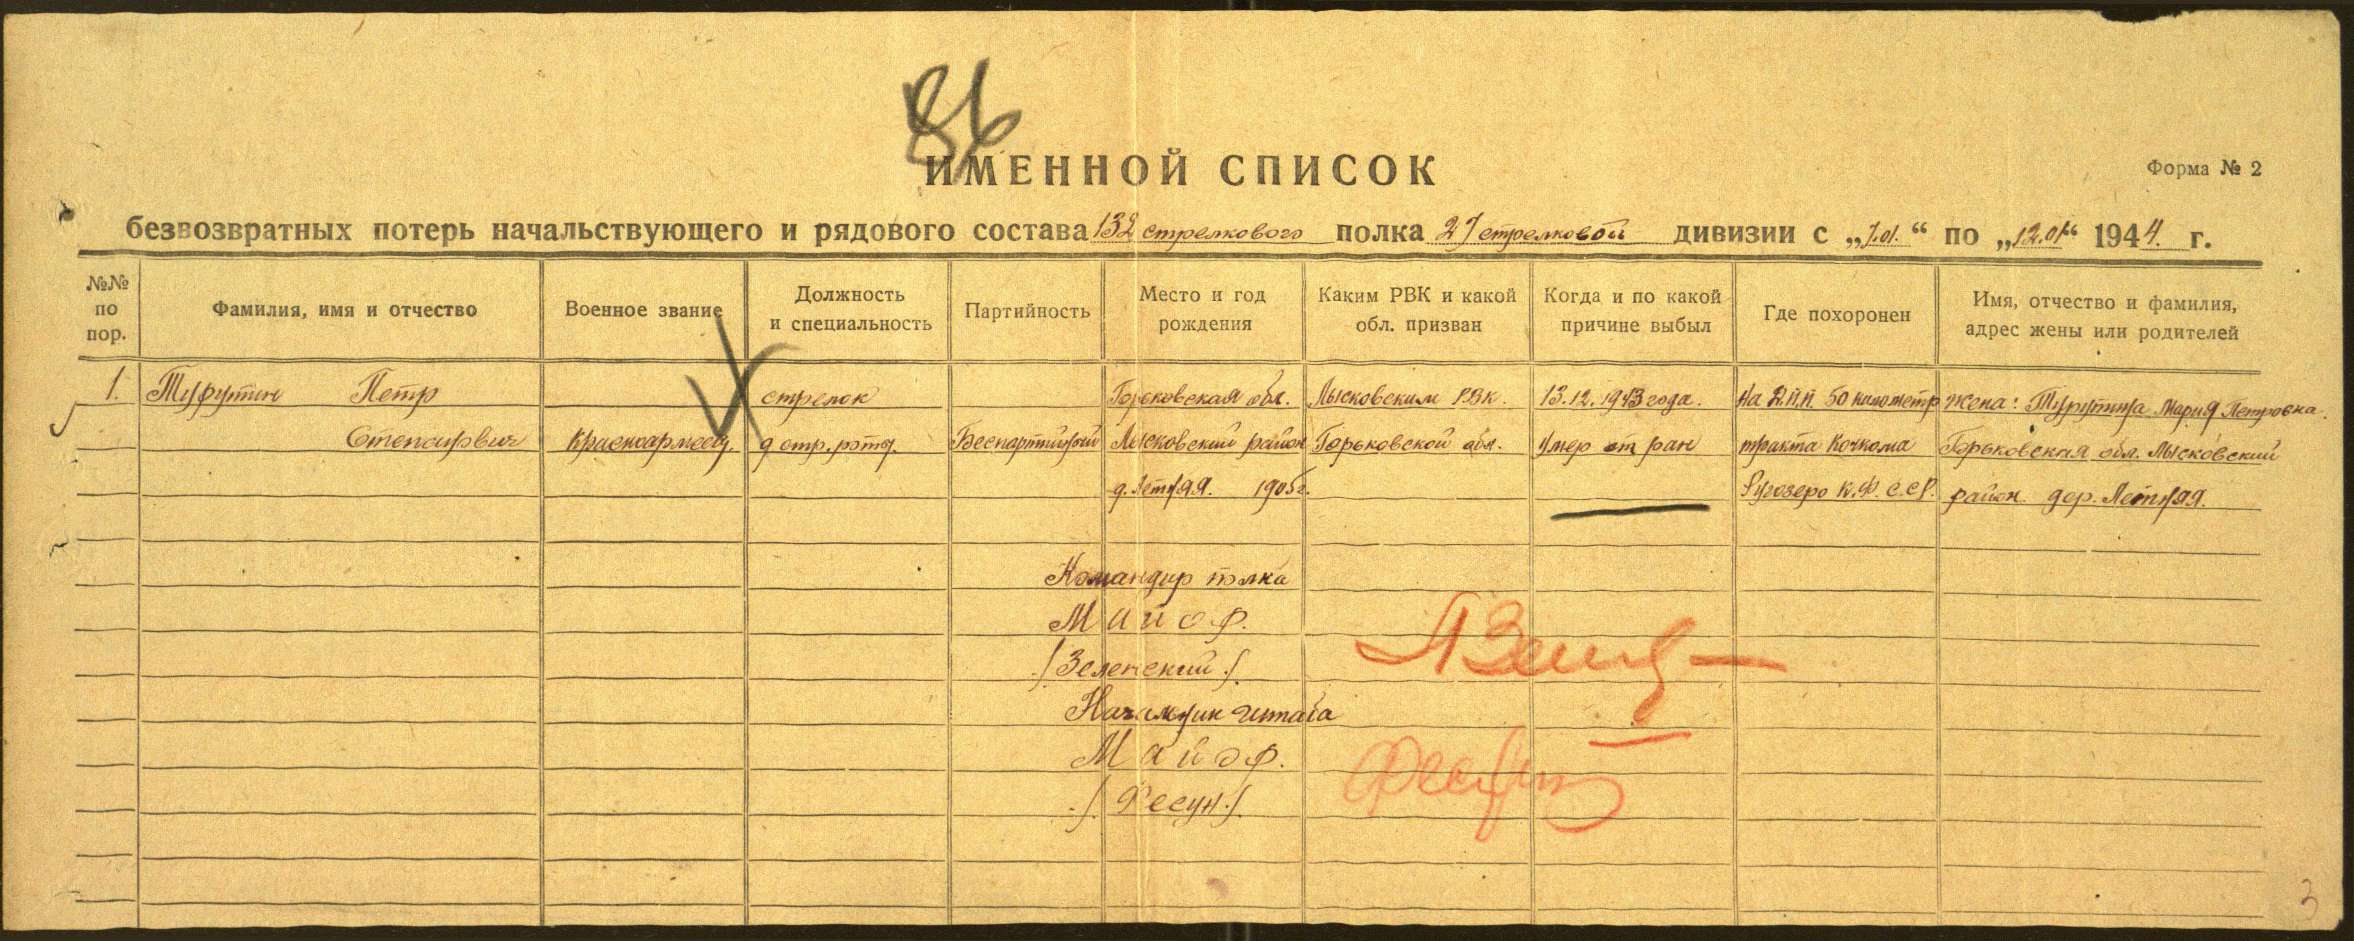 86
ИМЕННОЙ СПИСОК
Форма № 2
безвозвратных потерь начальствующего и рядового состава 132 стрелкового полка 27 стрелковой дивизии с „7.01.“ по „12.01“ 1944. г.
№№ по пор.
Фамилия, имя и отчество
Военное звание
Должность и специальность
Партийность
Место и год рождения
Каким РВК и какой обл. призван
Когда и по какой причине выбыл
Где похоронен
Имя, отчество и фамилия, адрес жены или родителей
1. Турутин Петр стрелок Горьковская обл. Лысковским РВК. 13.12.1943 года. На 2.П.П. 50 километр жена: Турутина Мария Петровна.
Степанович красноармеец. 9 стр. роты. Беспартийный Лысковский район Горьковской обл. Умер от ран тракта Кочкома Горьковская обл. Лысковский
д. Летняя. 1905г. Ругозеро К.Ф.С.С.Р. район дер. Летняя.
Командир полка
Майор.
/Зеленский/.
Начальник штаба
Майор.
/Фесун/.
3